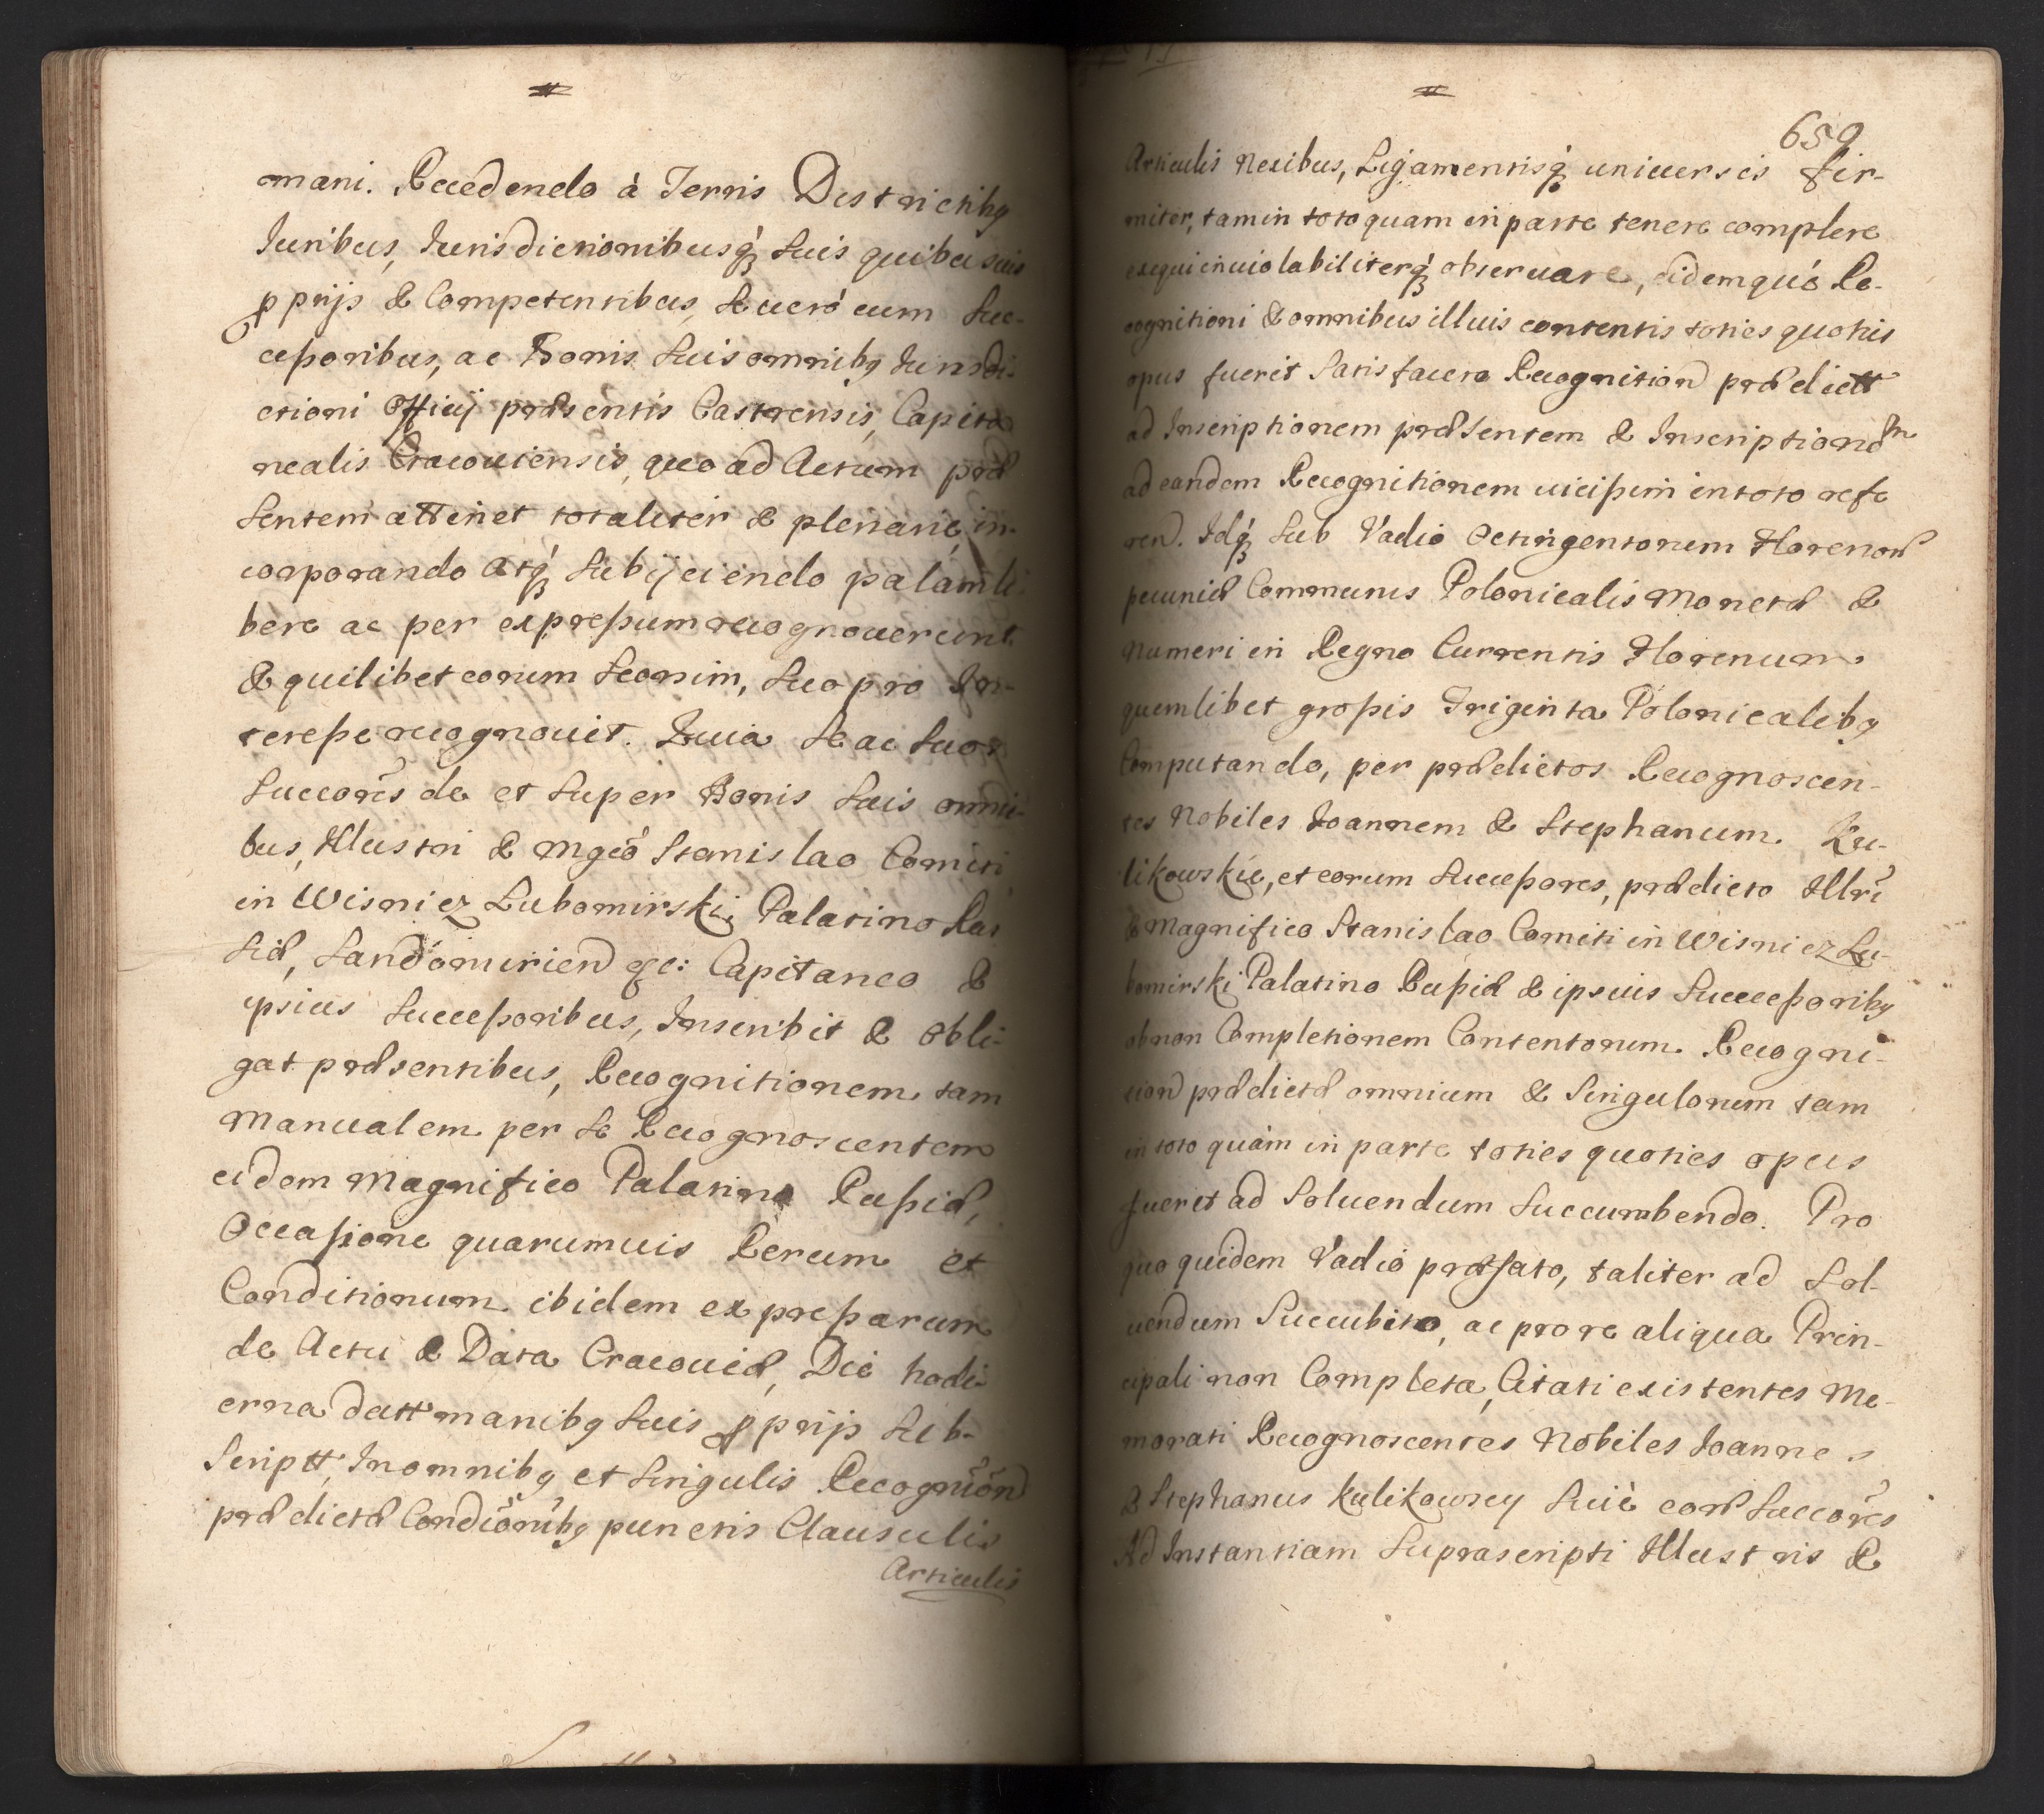 mani. Recedendo à Terris Districtibq
Iuribus, Iurisdictionibusq́ suis quibusuis
pprijs & Competentibus, se uerò cum suc-
cessoribus, ac Bonis suis omnibq Iurisdi-
ctioni Officij præsentis Castrensis, Capita
nealis Cracouiensis, quo ad Actum præ
sentem attinet totaliter & plenarie, in-
corporando atq́ subijciendo palam li
bere ac per expressum recognouerunt
& quilibet eorum seorsim, suo pro In-
teresse recognouit. Quia se ac suos
Succores de et super Bonis suis omni-
bus, Illustri & Mgco Stanislao Comiti
in Wisnicz Lubomirski, Palatino Rus
siæ, Sandomirien etc: Capitaneo &
ipsius Successoribus, Inscribit & obli-
gat præsentibus, Recognitionem tam
Manualem per se Recognoscentem
eidem Magnifico Palatino Russiæ,
Occasione quarumuis Rerum et
Conditionum ibidem expressarum
de Actu & Data Cracouiæ, Die hodi-
erna datt manibq suis pprijs sub-
scriptt, In omnibq et singulis Recognion
prædictæ Condionibq punctis Clausulis
Articulis
659
Articulis Nexibus, Ligamentisq́ uniuersis fir-
miter, tam in toto quam in parte tenere complere
exequi inuiolabiliterq́ obseruare, eidemqué Re-
cognitioni & omnibus illius contentis toties quoties
opus fuerit satisfacere Recognition prædictt
ad Inscriptionem præsentem & Inscriptionem
ad eandem Recognitionem uicissim in toto refe
ren. Idq́ sub Vadio Octingentorum Florenor
pecuniæ Communis Polonicalis Monetæ &
Numeri in Regno Currentis Florenum
quemlibet grossis Triginta Polonicalibq
Computando, per prædictos Recognoscen-
tes Nobiles Joannem & Stephanum Ku-
likowskie, et eorum Successores, prædicto Illri
& Magnifico Stanislao Comiti in Wisnicz Lu-
bomirski Palatino Russiæ & ipsius Successoribq
ob non Completionem Contentorum Recogni-
tion prædictæ omnium & Singulorum tam
in toto quàm in parte toties quoties opus
fuerit ad Soluendum Succumbendo. Pro
quo quidem Vadio præfato, taliter ad Sol-
uendum Succubito, ac pro re aliqua Prin-
cipali non Completa, Citati existentes Me-
morati Recognoscentes Nobiles Joannes
& Stephanus Kulikowscy Suiè eor Succores
Ad Instantiam Suprascripti Illustris &